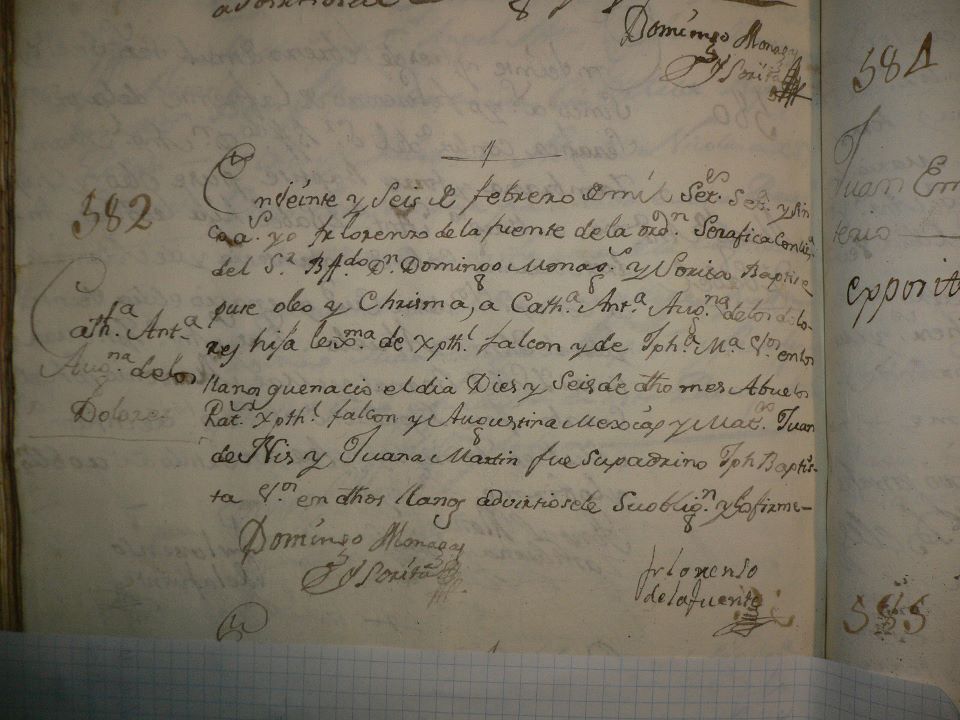 Domingo Monagas
y Sorita
584
582
Cath.ª Ant.ª
Aug.na de los
Dolores
En veinte y Seis de febrero de mil Set.s Set.ª y Sin
co a.s yo fr lorenzo de la fuente de la ord.n Serafica con lic.ª
del S.r B.do D.n Domingo Monag.s y Sorita Baptise
puse oleo y Chrisma, a Cath.ª Ant.ª Aug.na de los dolo-
res hija lexma de Xpth.l falcon y de Jph.ª M.ª V.os en los
llanos que nacio el dia Dies y Seis de dho mes Abuelos
Pat.s Xpth.l falcon y Augustina Mexias y Mat.s Juan
de Nis y Juana Martin fue su padrino Jph Baptis-
ta V.no en dhos llanos advirtiosele Su oblig.n y lo firme-
Domingo Monagas
y Sorita
fr lorenso
de la fuente
Juan Em
terio
exposit
585